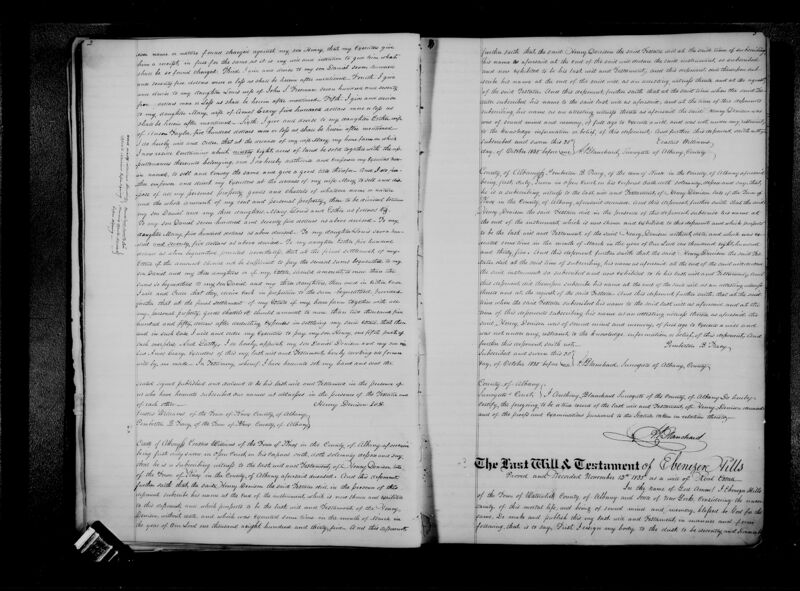 son name or nature found charged against my son Henry, that my Executors give
him a receipt in full for the same as it is my will and intention to give him what
shall be so found charged. Third I give and devise to my son Daniel seven hundred
and seventy five dollars more or less as shall be herein after mentioned. Fourth I give
and devise to my daughter Lovis wife of John I seven hundred and seventy
five dollars more or less as shall be herein after mentioned. Fifth I give and devise
to my daughter Mary, wife of Amos Crary five hundred dollars more or less as
shall be herein after mentioned. Sixth I give and devise to my daughter Esther wife
of five hundred dollars more or less as shall be herein after mentioned.
I do hereby will and Order that at the decease of my wife Mary, my home farm on which
I now reside Containing which eighty acres of land be sold together with the
appurtenances thereunto belonging, and I do hereby authorise and empower my Executors
herein named, to sell and Convey the same and give a good title therefor. And I do
further empower and direct my Executors at the decease of my wife Mary, to sell and
dispose of all my personal property goods and chattels of whatever name or nature
and the whole amount of my real and personal property, then to be divided between
my son Daniel and my three daughters Mary, Lovis and Esther as follows Viz.
To my son Daniel seven hundred and seventy five dollars as above devised. To my
daughter Mary, five hundred dollars as above devised. To my daughter Lovis seven
hundred and seventy five dollars as above devised. To my daughter Esther five hundred
dollars as above bequeathed provided nevertheless, that at the final settlement of my
Estate if the amount should not be sufficient to pay the several sums bequeathed to my
son Daniel and my three daughters or if my Estate should amount to more than the
sums so bequeathed to my son Daniel and my three daughters, then and in either case
I will and Order that they receive each in proportion to the sum bequeathed, provided
further that at the final settlement of my Estate if my home farm together with all
my personal property goods chattels &c should amount to more than two thousand five
hundred and fifty dollars after deducting expenses in settling my said Estate, that then
and in such case I will and order my Executors to pay my son Henry, one fifth part of
such overplus. And Lastly, I do hereby appoint my son Daniel Denison and my son in
law Amos Crary Executors of this my last will and Testament, hereby revoking all former
wills by me made. In Testimony whereof I have hereunto set my hand and seal the
sealed signed published and declared to be his last will and Testament in the presence of
us who have hereunto subscribed our names as witnesses in the presence of the Testator and
of each other Henry Denison L.S.
Erastus Williams of the Town of Knox County of Albany
Pemberton B. Tracy of the Town of Knox County of Albany
County of Albany ss Erastus Williams of the Town of Knox in the County of Albany aforesaid
being first duly sworn in Open Court on his Corporal oath, doth solemnly depose and say,
that he is a subscribing witness to the last will and Testament of Henry Denison late
of the Town of Knox in the County of Albany aforesaid deceased. And this deponent
further saith that the said Henry Denison the said Testator did in the presence of this
deponent subscribe his name at the end of the instrument which is now shown and exhibited
to this deponent, and which purports to be the last will and Testament of the Henry
Denison without date and which was executed some time in the month of March in
the year of Our Lord one thousand eight hundred and thirty five. And this deponent
further saith that the said Henry Denison the said Testator did at the time of subscribing
his name as aforesaid at the end of the said will declare the said instrument so subscribed
and now exhibited to be his last will and Testament, and this deponent did thereupon
subscribe his name at the end of the said will as an attesting witness thereto and at the request
of the said Testator. And this deponent further saith that at the said time when the said
Testator subscribed his name to the said last will as aforesaid, and at the time of this deponent
subscribing his name as an attesting witness thereto as aforesaid the said Henry Denison was
of sound mind and memory, of full age to execute a will, and was not under any restraint
to the knowledge information or belief, of this deponent; And further this deponent saith not
Subscribed and sworn this 20th Erastus Williams
day of October 1835 before me A. Blanchard Surrogate of Albany County
County of Albany ss Pemberton B. Tracy, of the town of Knox in the County of Albany aforesaid
being first duly sworn in open Court on his Corporal oath doth solemnly depose and say, that
he is a subscribing witness to the last will and Testament, of Henry Denison late of the Town of
Knox in the County of Albany aforesaid deceased. And this deponent further saith that the said
Henry Denison the said Testator did in the presence of this deponent subscribe his name at
the end of the instrument which is now shown and exhibited to this deponent and which purports
to be the last will and Testament of the said Henry Denison without date, and which was
executed some time in the month of March in the year of Our Lord One thousand eight hundred
and thirty five; And this deponent further saith that the said Henry Denison the said
Testator did at the time of subscribing his name as aforesaid at the end of the said will declare
the said instrument so subscribed and now exhibited to be his last will and Testament; And
this deponent did thereupon subscribe his name at the end of the said will as an attesting witness
thereto and at the request of the said Testator. And this deponent further saith that at the said
time when the said Testator subscribed his name to the said last will as aforesaid and at the
time of this deponent subscribing his name as an attesting witness thereto as aforesaid the
said Henry Denison was of sound mind and memory, of full age to execute a will and
was not under any restraint to the knowledge information or belief of this deponent. And
further this deponent saith not Pemberton B. Tracy
Subscribed and sworn this 20th
day of October 1835 before me A. Blanchard Surrogate of Albany County
County of Albany
Surrogates Court ss I Anthony Blanchard Surrogate of the County of Albany Do hereby
certify, the foregoing to be a true record of the last will and Testament of Henry Denison deceased
and of the proofs and Examinations pursuant to the Statute taken in relation thereto
A. Blanchard
The Last Will & Testament of Ebenezer Hills
Proved and Recorded November 13th 1835 as a will of Real Estate
In the name of God Amen. I Ebenezer Hills
of the Town of Watervliet County of Albany and State of New York, Considering the uncertainty
of this mortal life, and being of sound mind and memory, blessed be God for the
same, Do make and publish this my last will and Testament in manner and form
following, that is to say, First I resign my body to the dust to be decently and